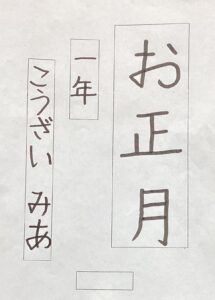 お正月
一年
こうざい みあ